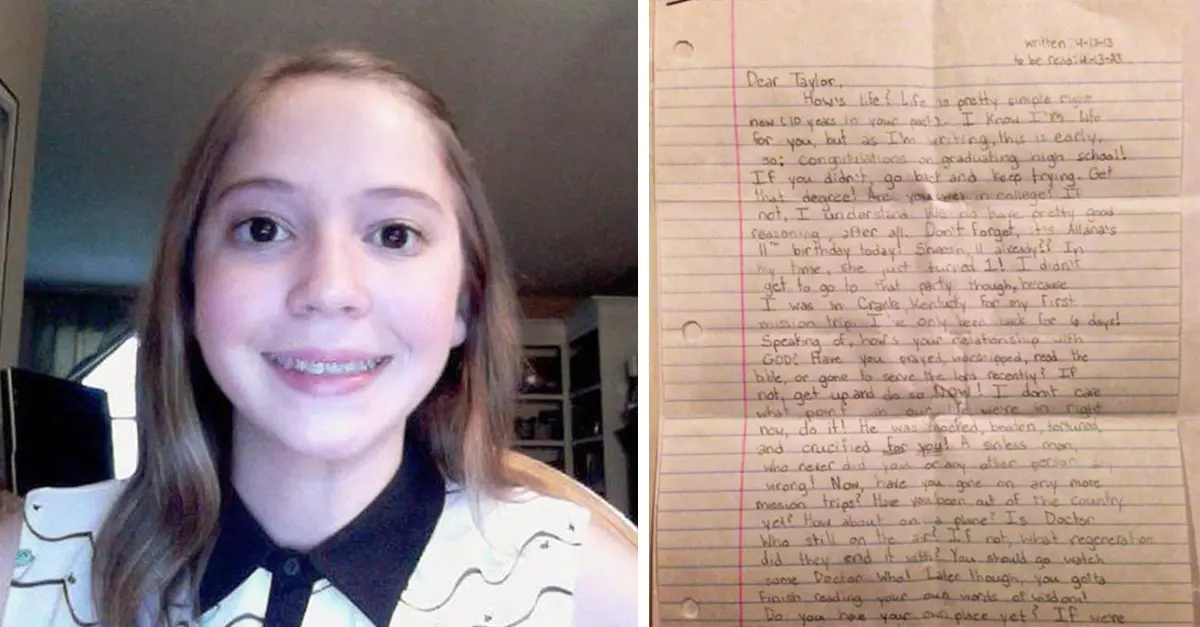 written: 4-13-13
to be read: 4-13-23
Dear Taylor,
How's life? Life is pretty simple right
now (10 years in your past). I know I'm late
for you, but as I'm writing, this is early,
so; congratulations on graduating high school!
If you didn't, go back and keep trying. Get
that degree! Are you in college? If
not, I understand. We do have pretty good
reasoning, after all. Don't forget, it's Allana's
11th birthday today! Sheesh, 11 already?? In
my time, she just turned 1! I didn't
get to go to that party though, because
I was in Cranks, Kentucky for my first
mission trip. I've only been back for 6 days!
Speaking of, how's your relationship with
GOD? Have you prayed, worshipped, read the
bible, or gone to serve the lord recently? If
not, get up and do so NOW! I don't care
what point in our life we're in right
now, do it! He was mocked, beaten, tortured,
and crucified for you! A sinless man,
who never did you or any other person any
wrong! Now, have you gone on any more
mission trips? Have you been out of the country
yet? How about on a plane? Is Doctor
Who still on the air? If not, what regeneration
did they end it with? You should go watch
some Doctor Who! Later though, you gotta
finish reading your own words of wisdom!
Do you have your own place yet? If we're